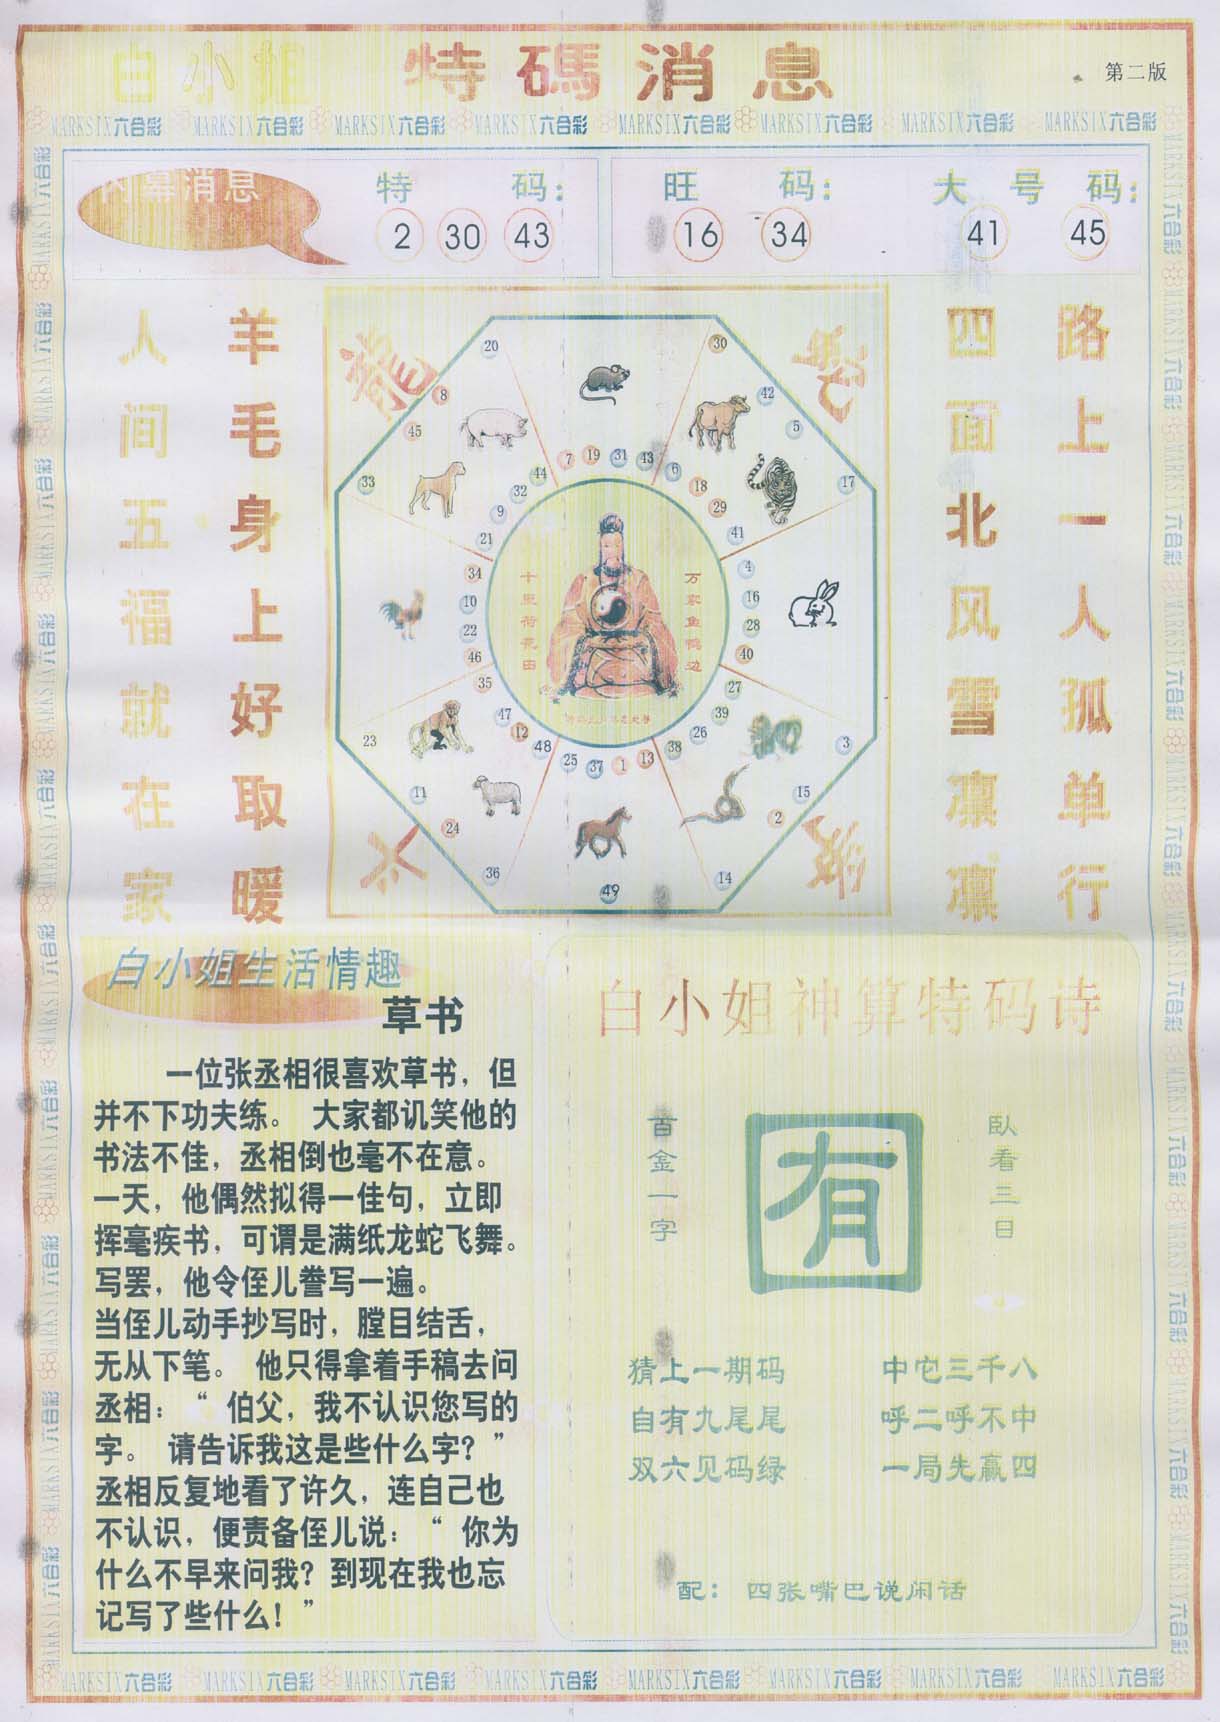 白小姐 特碼消息
第二版
MARKSIX六合彩 MARKSIX六合彩 MARKSIX六合彩 MARKSIX六合彩 MARKSIX六合彩 MARKSIX六合彩 MARKSIX六合彩 MARKSIX六合彩
内幕消息
特 码:
2 30 43
旺 码:
16 34
大 号 码:
41 45
路上一人孤单行
四面北风雪凛凛
羊毛身上好取暖
人间五福就在家
龍
20
30
8
45
42
5
33
44
7
19
31
43
6
17
32
9
21
18
29
41
34
10
22
46
4
16
28
40
万家鱼鸭边
十里荷花田
35
47
12
48
25
37
1
13
38
26
39
27
23
11
24
36
49
14
2
15
3
白小姐生活情趣
草书
一位张丞相很喜欢草书，但
并不下功夫练。 大家都讥笑他的
书法不佳，丞相倒也毫不在意。
一天，他偶然拟得一佳句，立即
挥毫疾书，可谓是满纸龙蛇飞舞。
写罢，他令侄儿誊写一遍。
当侄儿动手抄写时，瞠目结舌，
无从下笔。 他只得拿着手稿去问
丞相：“ 伯父，我不认识您写的
字。 请告诉我这是些什么字？”
丞相反复地看了许久，连自己也
不认识，便责备侄儿说：“ 你为
什么不早来问我？到现在我也忘
记写了些什么！”
白小姐神算特码诗
卧看三日
有
百金一字
猜上一期码 中它三千八
自有九尾尾 呼二呼不中
双六见码绿 一局先赢四
配： 四张嘴巴说闲话
MARKSIX六合彩 MARKSIX六合彩 MARKSIX六合彩 MARKSIX六合彩 MARKSIX六合彩 MARKSIX六合彩 MARKSIX六合彩 MARKSIX六合彩